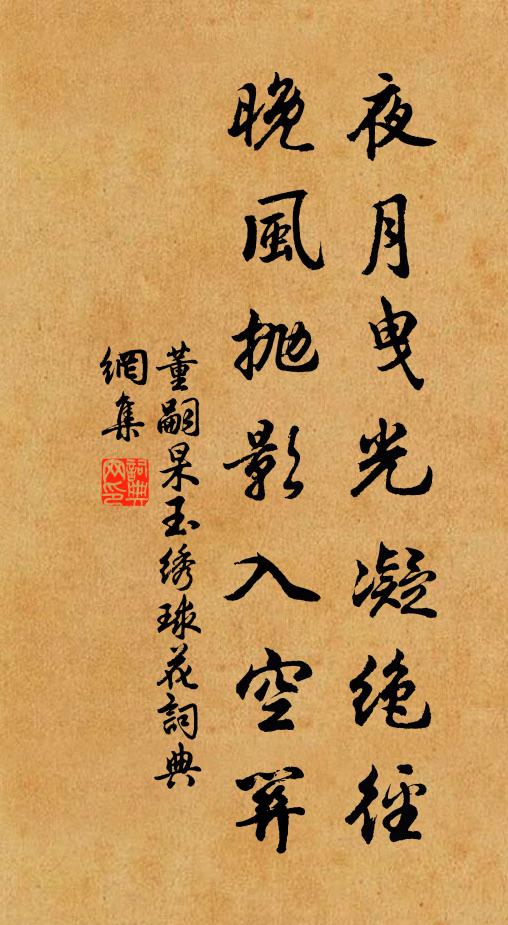 夜月曳光凝绝徑
晚風抛影入空
董嗣杲玉绣球花詞典
網集
詞典
网印